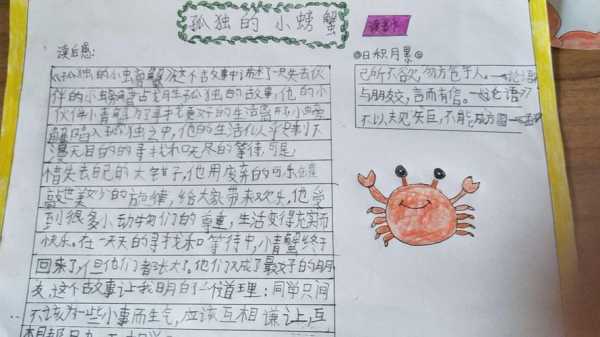 孤独的小螃蟹
读书卡
读后感:
《孤独的小螃蟹》这个古故事中讲述了一只失去伙
伴的小螃蟹
孤独的故事,他的小
伙伴小青蟹为了寻找更好的生活离开小螃
蟹陷入孤独之中,他的生活似乎
漫无目的的寻找和无尽的等待,可是
惜失去自己的大钳子,他用废弃的可乐罐
敲出美妙的旋律,给大家带来欢乐。他受
到很多小动物们的尊重,生活变得充实而
快乐。在一天天的寻找和等待中,小青蟹终于
回来了,但他们都张大了。他们又成了最好的朋
友。这个古故事让我明白一个道理:同学只间
不该为一些小事而生气,应该互相谦让,互
日积月累
己所不欲,勿方色于人。—论语
与朋友交,言而有信。—论语
不以规矩,不能成方圆